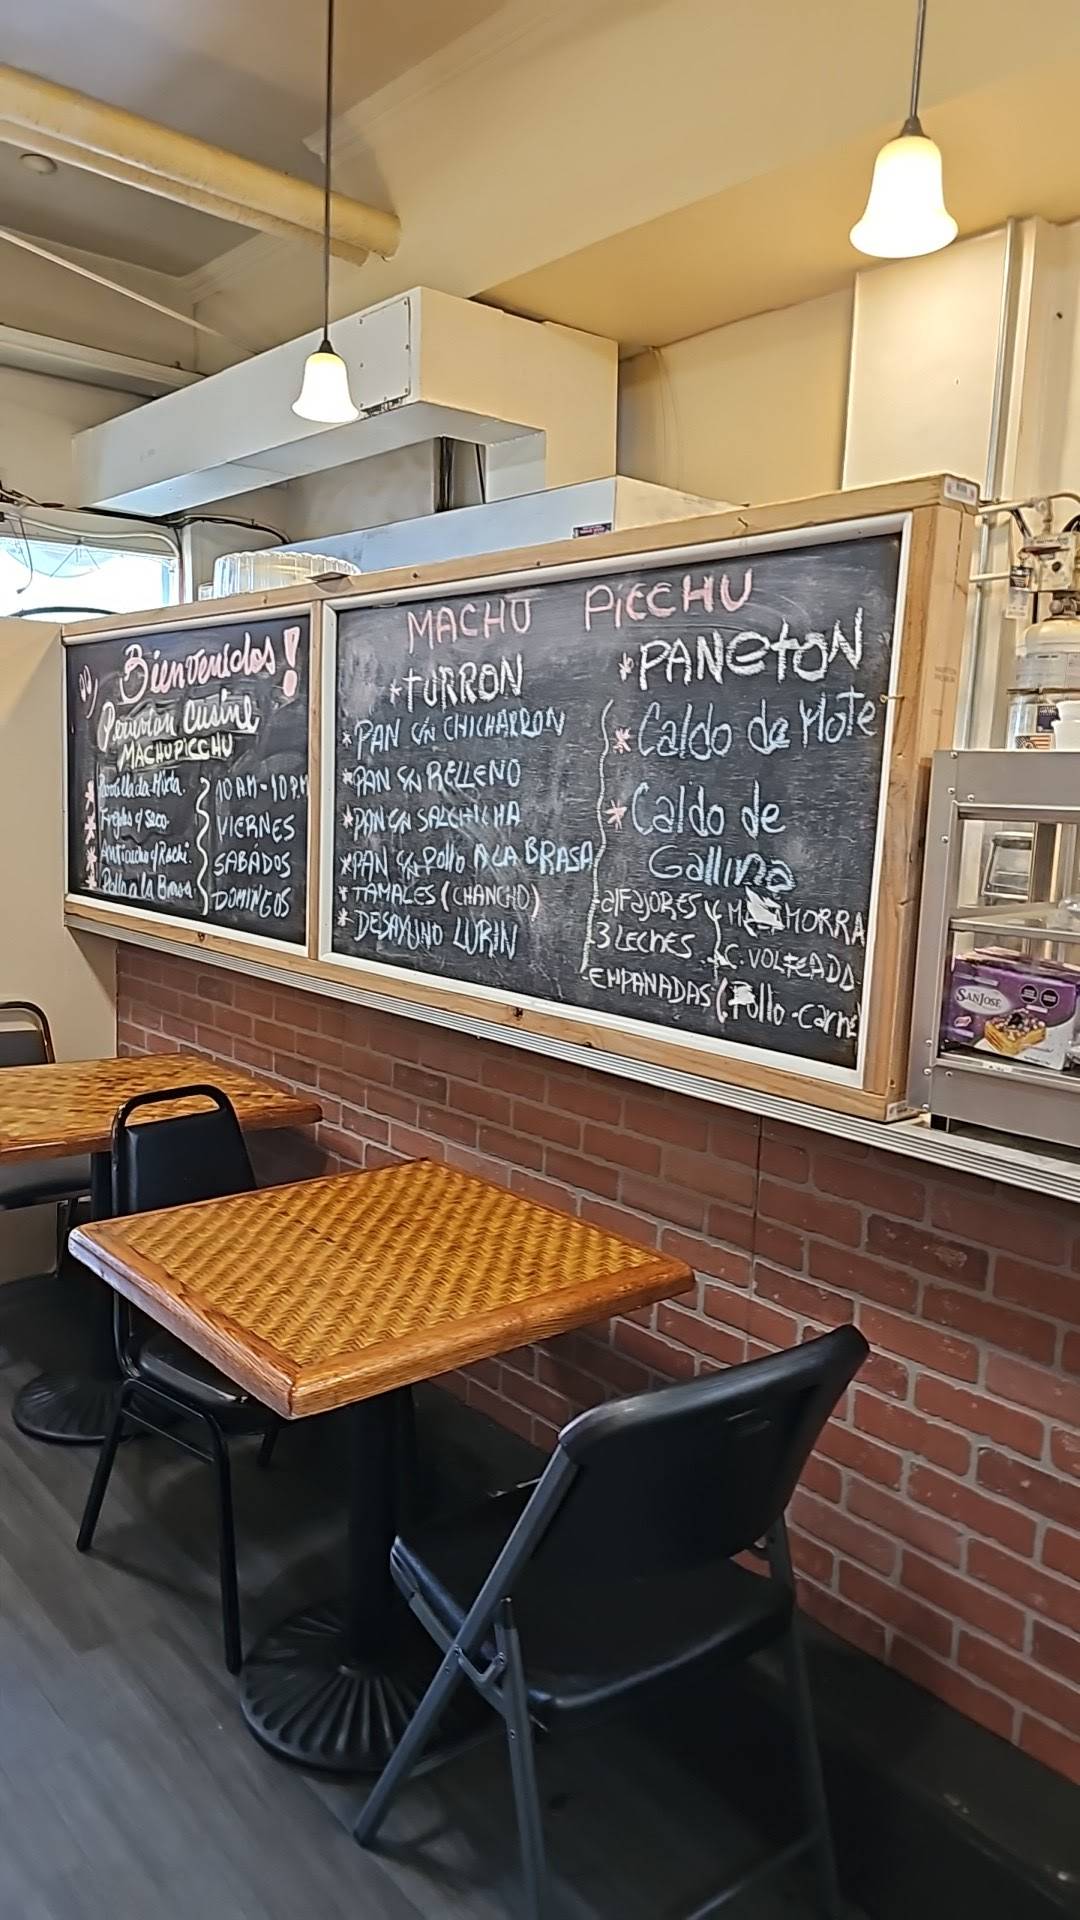 Bienvenidos!
Peruvian Cusine
MACHUPICCHU
* Parrillada Mixta.
* Frejoles y seco
* Anticucho y Rachi.
* Pollo a la Brasa
10 AM - 10 P.M
VIERNES
SABÁDOS
DOMINGOS
MACHU PICCHU
*TURRON
*PAN CN CHICHARRON
*PAN CN RELLENO
*PAN CN SALCHICHA
*PAN CN POLLO A LA BRASA
* TAMALES (CHANCHO)
* DESAYUNO LURIN
*PANETON
* Caldo de Mote
* Caldo de
Gallina
-alFAJORES y MAZAMORRA
-3 LECHES. C. VOLTEADO
-EMPANADAS (Pollo-carne
SANJOSE